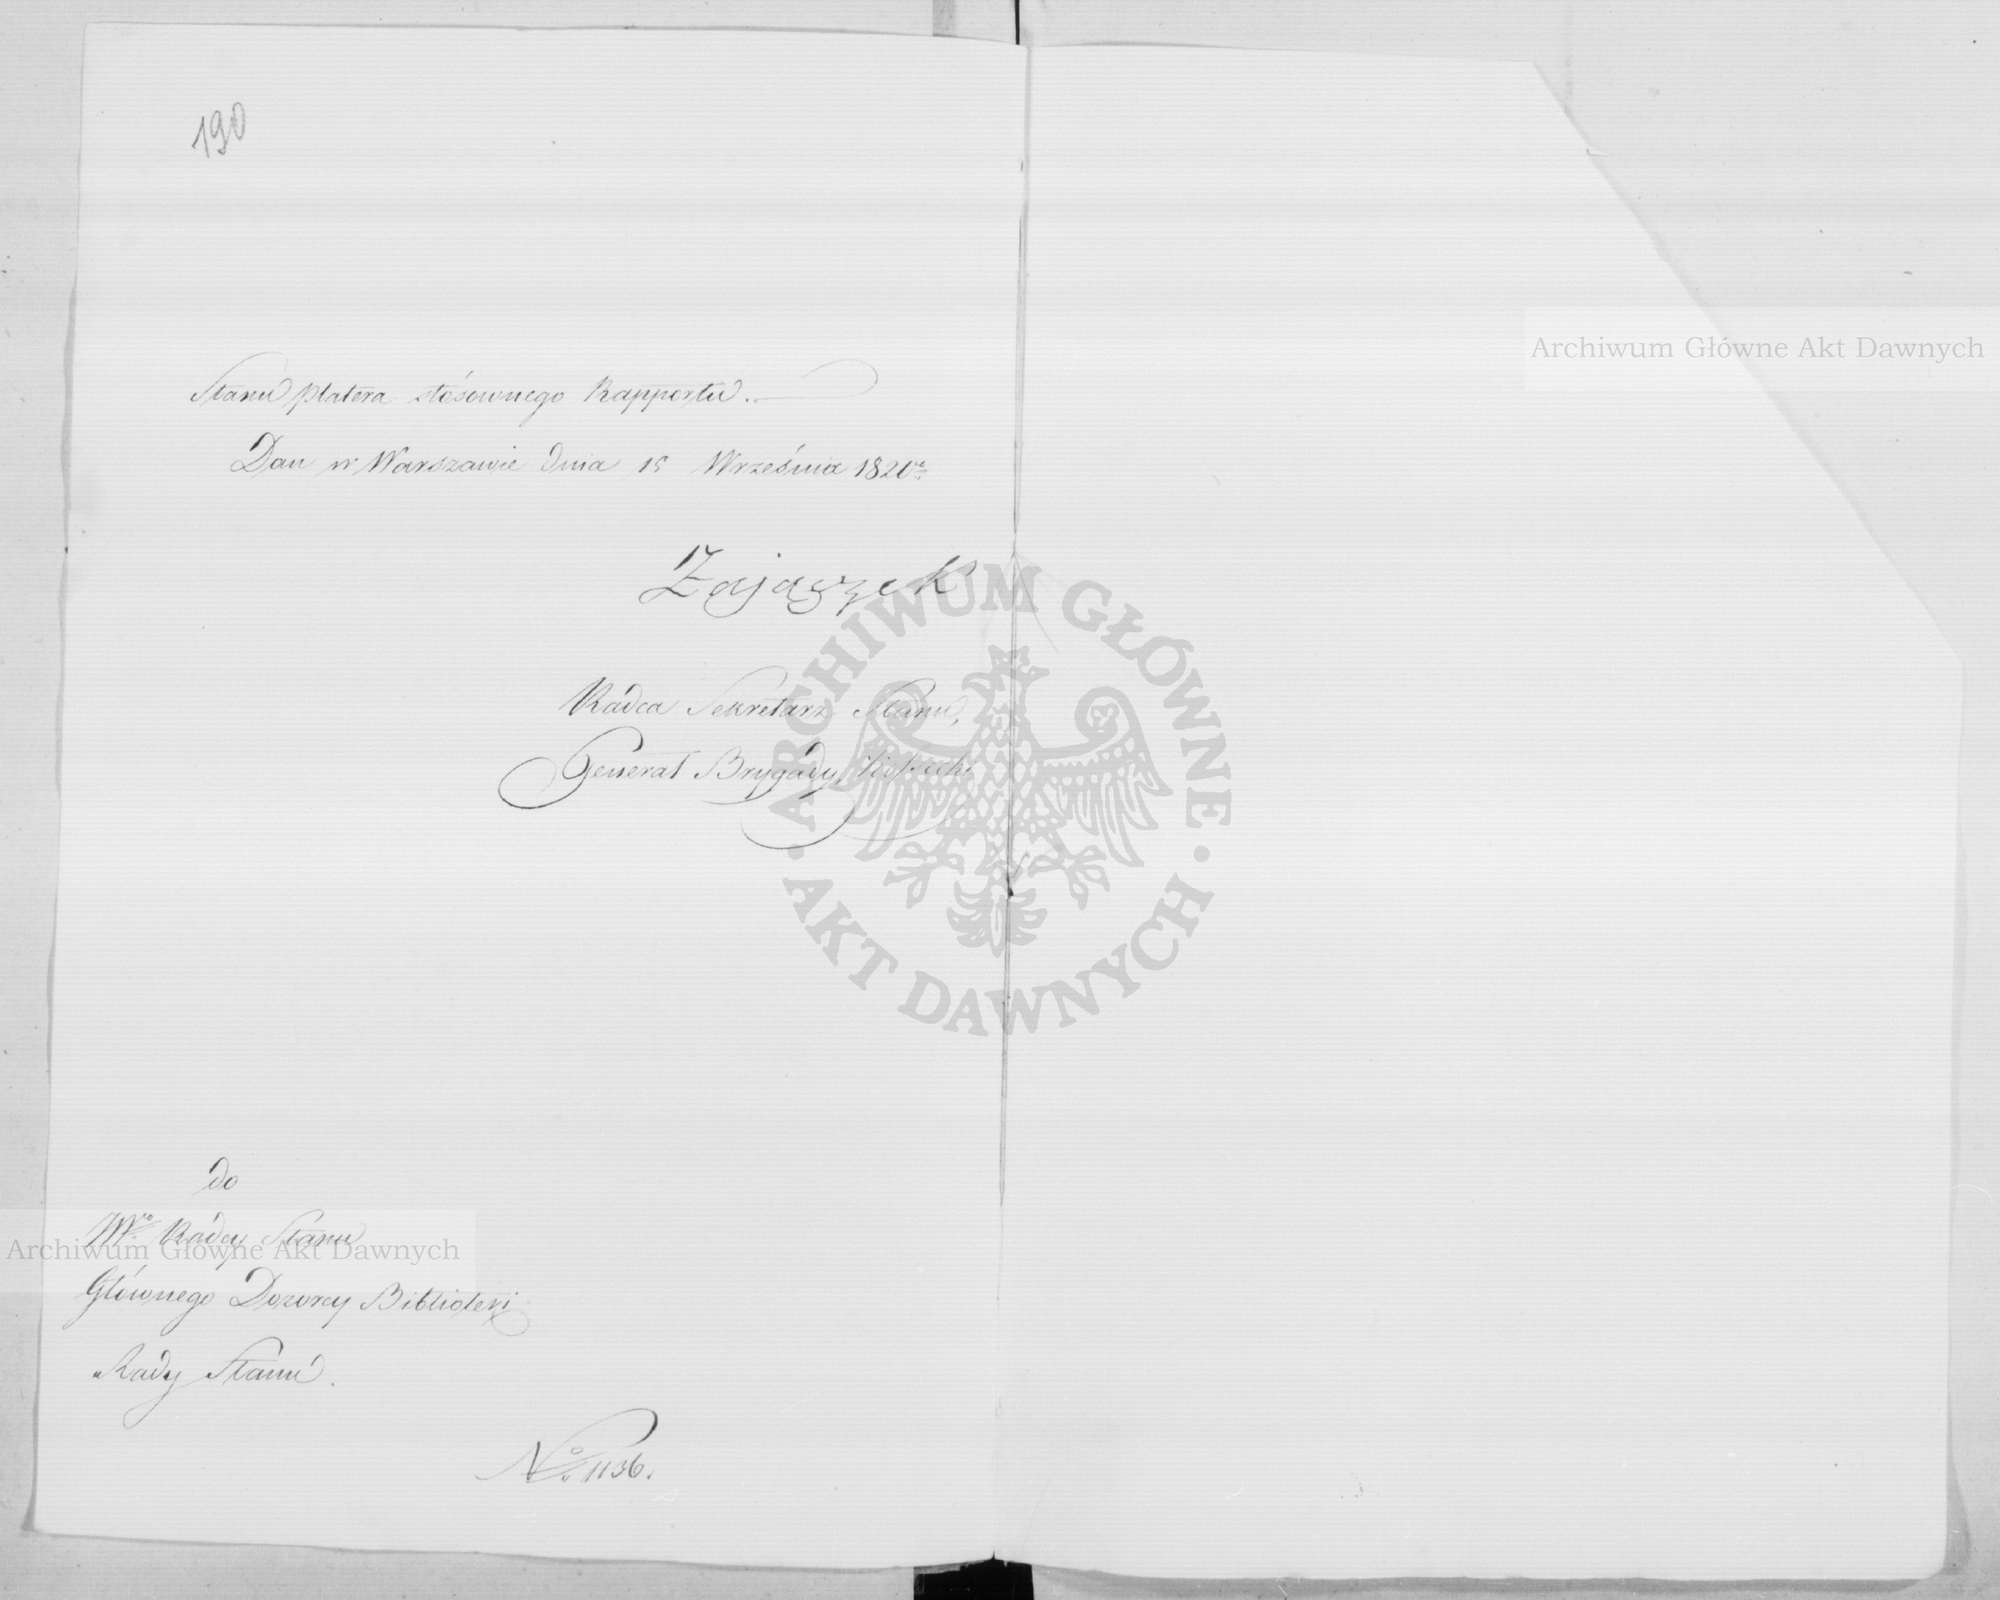 190
Stanu Platera stósownego Rapportu.
Dan w Warszawie dnia 15 Września 1820 r.
Zajączek
Radca Sekretarz Stanu,
Generał Brygady, Kossecki
do
JW° Radcy Stanu
Głównego Dozorcy Biblioteki
Rady Stanu.
N° 1136.
Archiwum Główne Akt Dawnych
Archiwum Główne Akt Dawnych
ARCHIWUM GŁÓWNE
AKT DAWNYCH